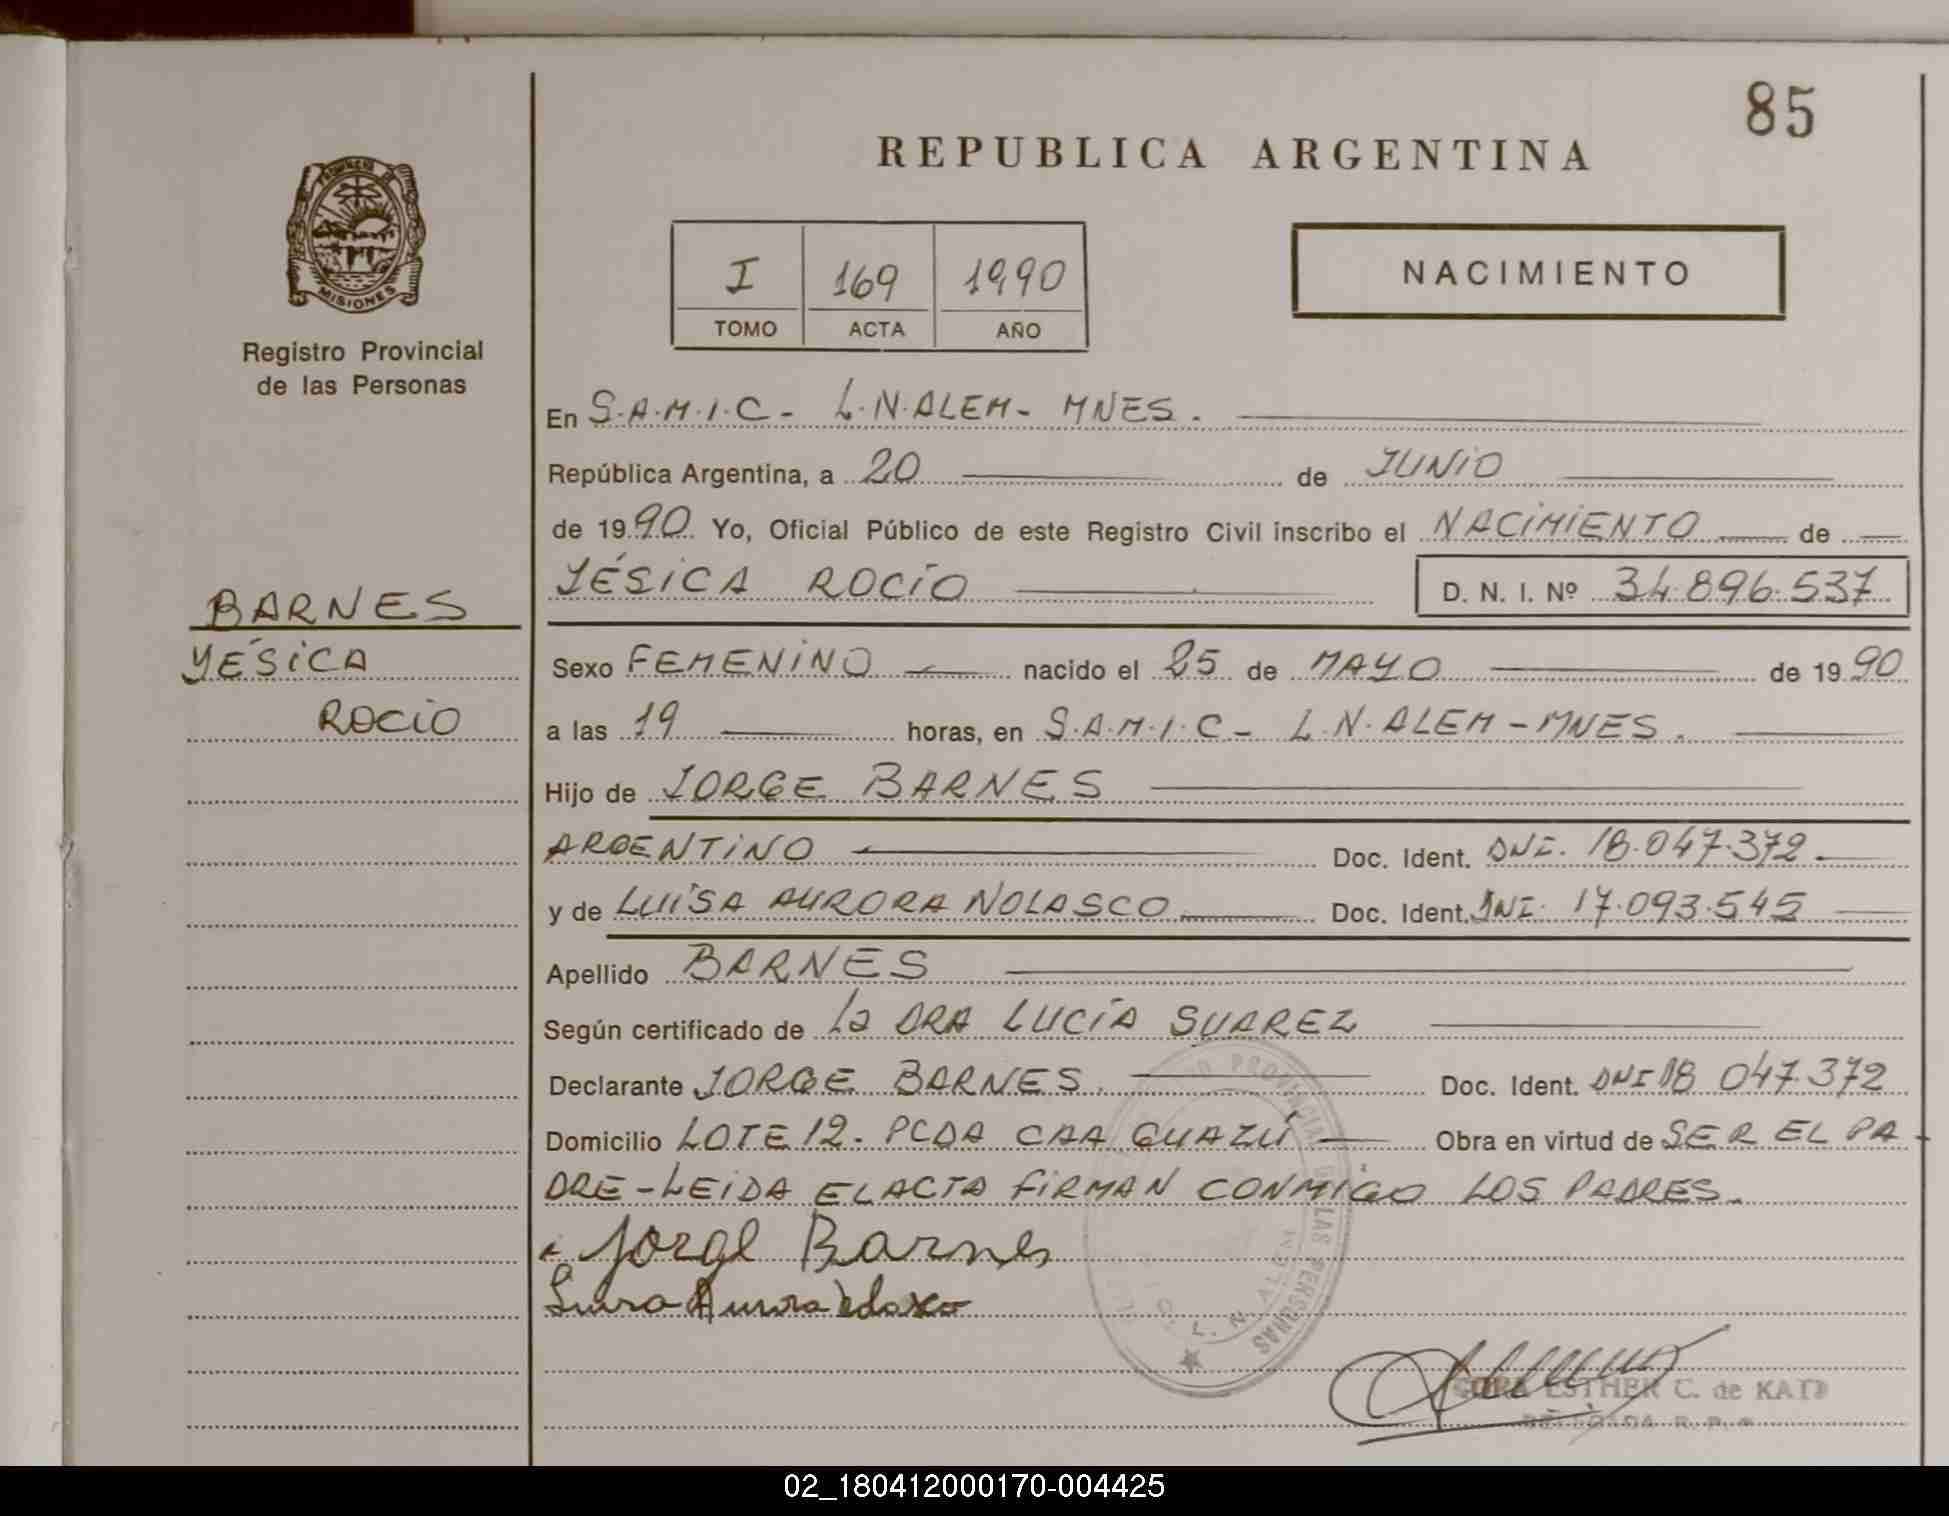 85
REPUBLICA ARGENTINA
MISIONES
Registro Provincial
de las Personas
I 169 1990
TOMO ACTA AÑO
NACIMIENTO
En S.A.M.I.C - L.N.ALEM - MNES.
República Argentina, a 20 de JUNIO
de 1990 Yo, Oficial Público de este Registro Civil inscribo el NACIMIENTO de
YÉSICA ROCÍO D. N. I. Nº 34.896.537
BARNES
YÉSICA
ROCIO
Sexo FEMENINO nacido el 25 de MAYO de 1990
a las 19 horas, en S.A.M.I.C - L.N.ALEM - MNES.
Hijo de JORGE BARNES
ARGENTINO Doc. Ident. DNI. 18.047.372
y de LUISA AURORA NOLASCO Doc. Ident. DNI. 17.093.545
Apellido BARNES
Según certificado de La DRA LUCÍA SUAREZ
Declarante JORGE BARNES. Doc. Ident. DNI 18 047.372
Domicilio LOTE 12. PCDA CAA GUAZÚ Obra en virtud de SER EL PA-
DRE - LEIDA EL ACTA FIRMAN CONMIGO LOS PADRES.
Jorge Barnes
Luisa Aurora
PROVINCIAL DE LAS PERSONAS
L. N. ALEM
ESTHER C. de
02_180412000170-004425